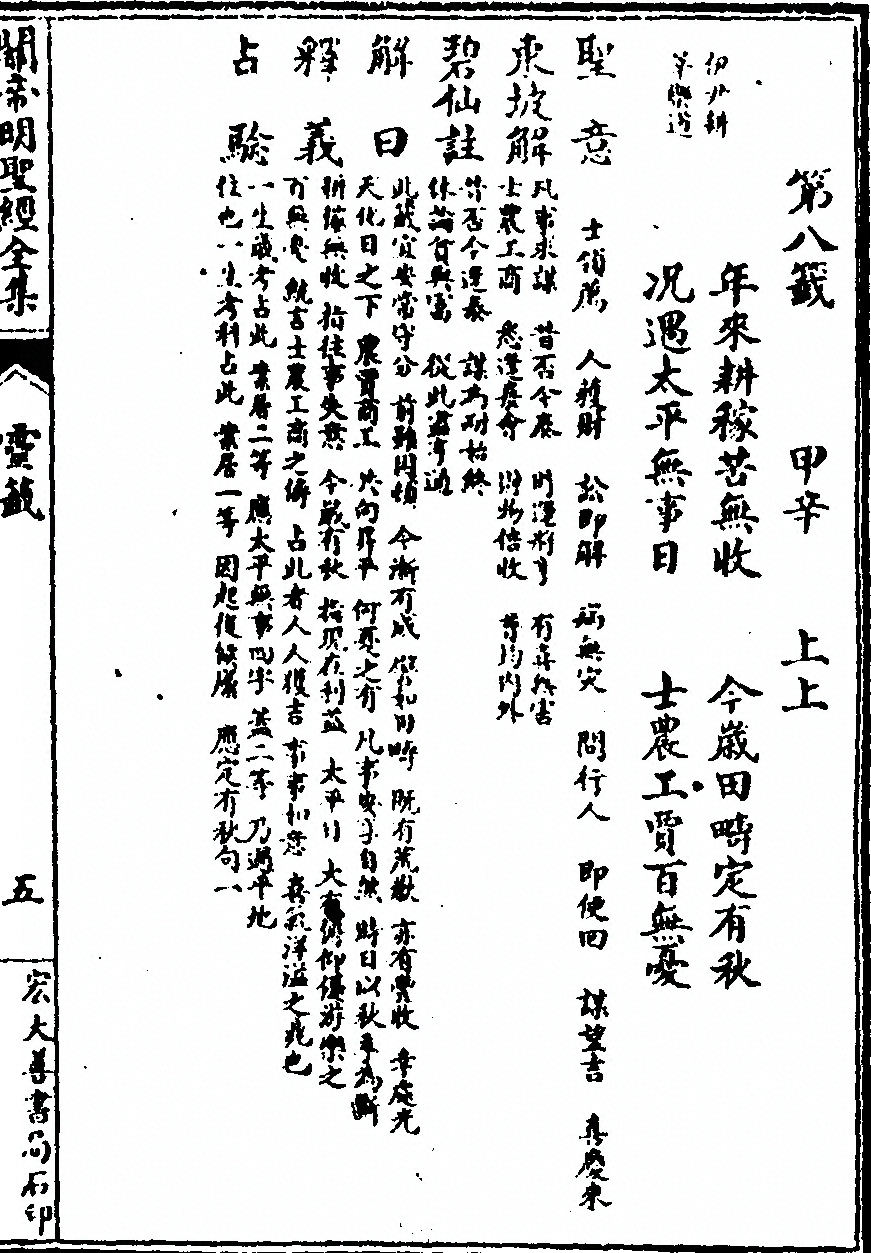 第八籤 甲辛 上上
伊尹耕
莘樂道
年來耕稼苦無收 今歲田疇定有秋
况遇太平無事日 士農工賈百無憂
聖意 士領薦 人獲財 訟即解 病無灾 問行人 即便回 謀望吉 喜慶來
東坡解 凡事求謀 昔否今泰 時運將亨 有喜無害
士農工商 悉逢慶會 財物倍收 普均内外
碧仙註 昔否今還泰 謀為耐始終
休論貧與富 從此盡亨通
解曰 此籤宜安常守分 前雖困頓 今漸有成 譬如田疇 既有荒歉 亦有豐收 幸旋光
天化日之下 農賈商工 共向昇平 何憂之有 凡事安享自然 時日以秋平為斷
釋義 耕稼無收 指往事失意 今歲有秋 指現在利益 太平日 大有俯仰優游樂之
百無憂 統言士農工商之儔 占此者人人獲吉 事事如意 喜氣洋溢之兆也
占驗 一生歲考占此 業居二等 應太平無事四字 蓋二等 乃過平地
位也 一生考科占此 業居一等 因起復候廪 應定有秋句
關帝明聖經全集
靈籤
五
宏大善書局石印